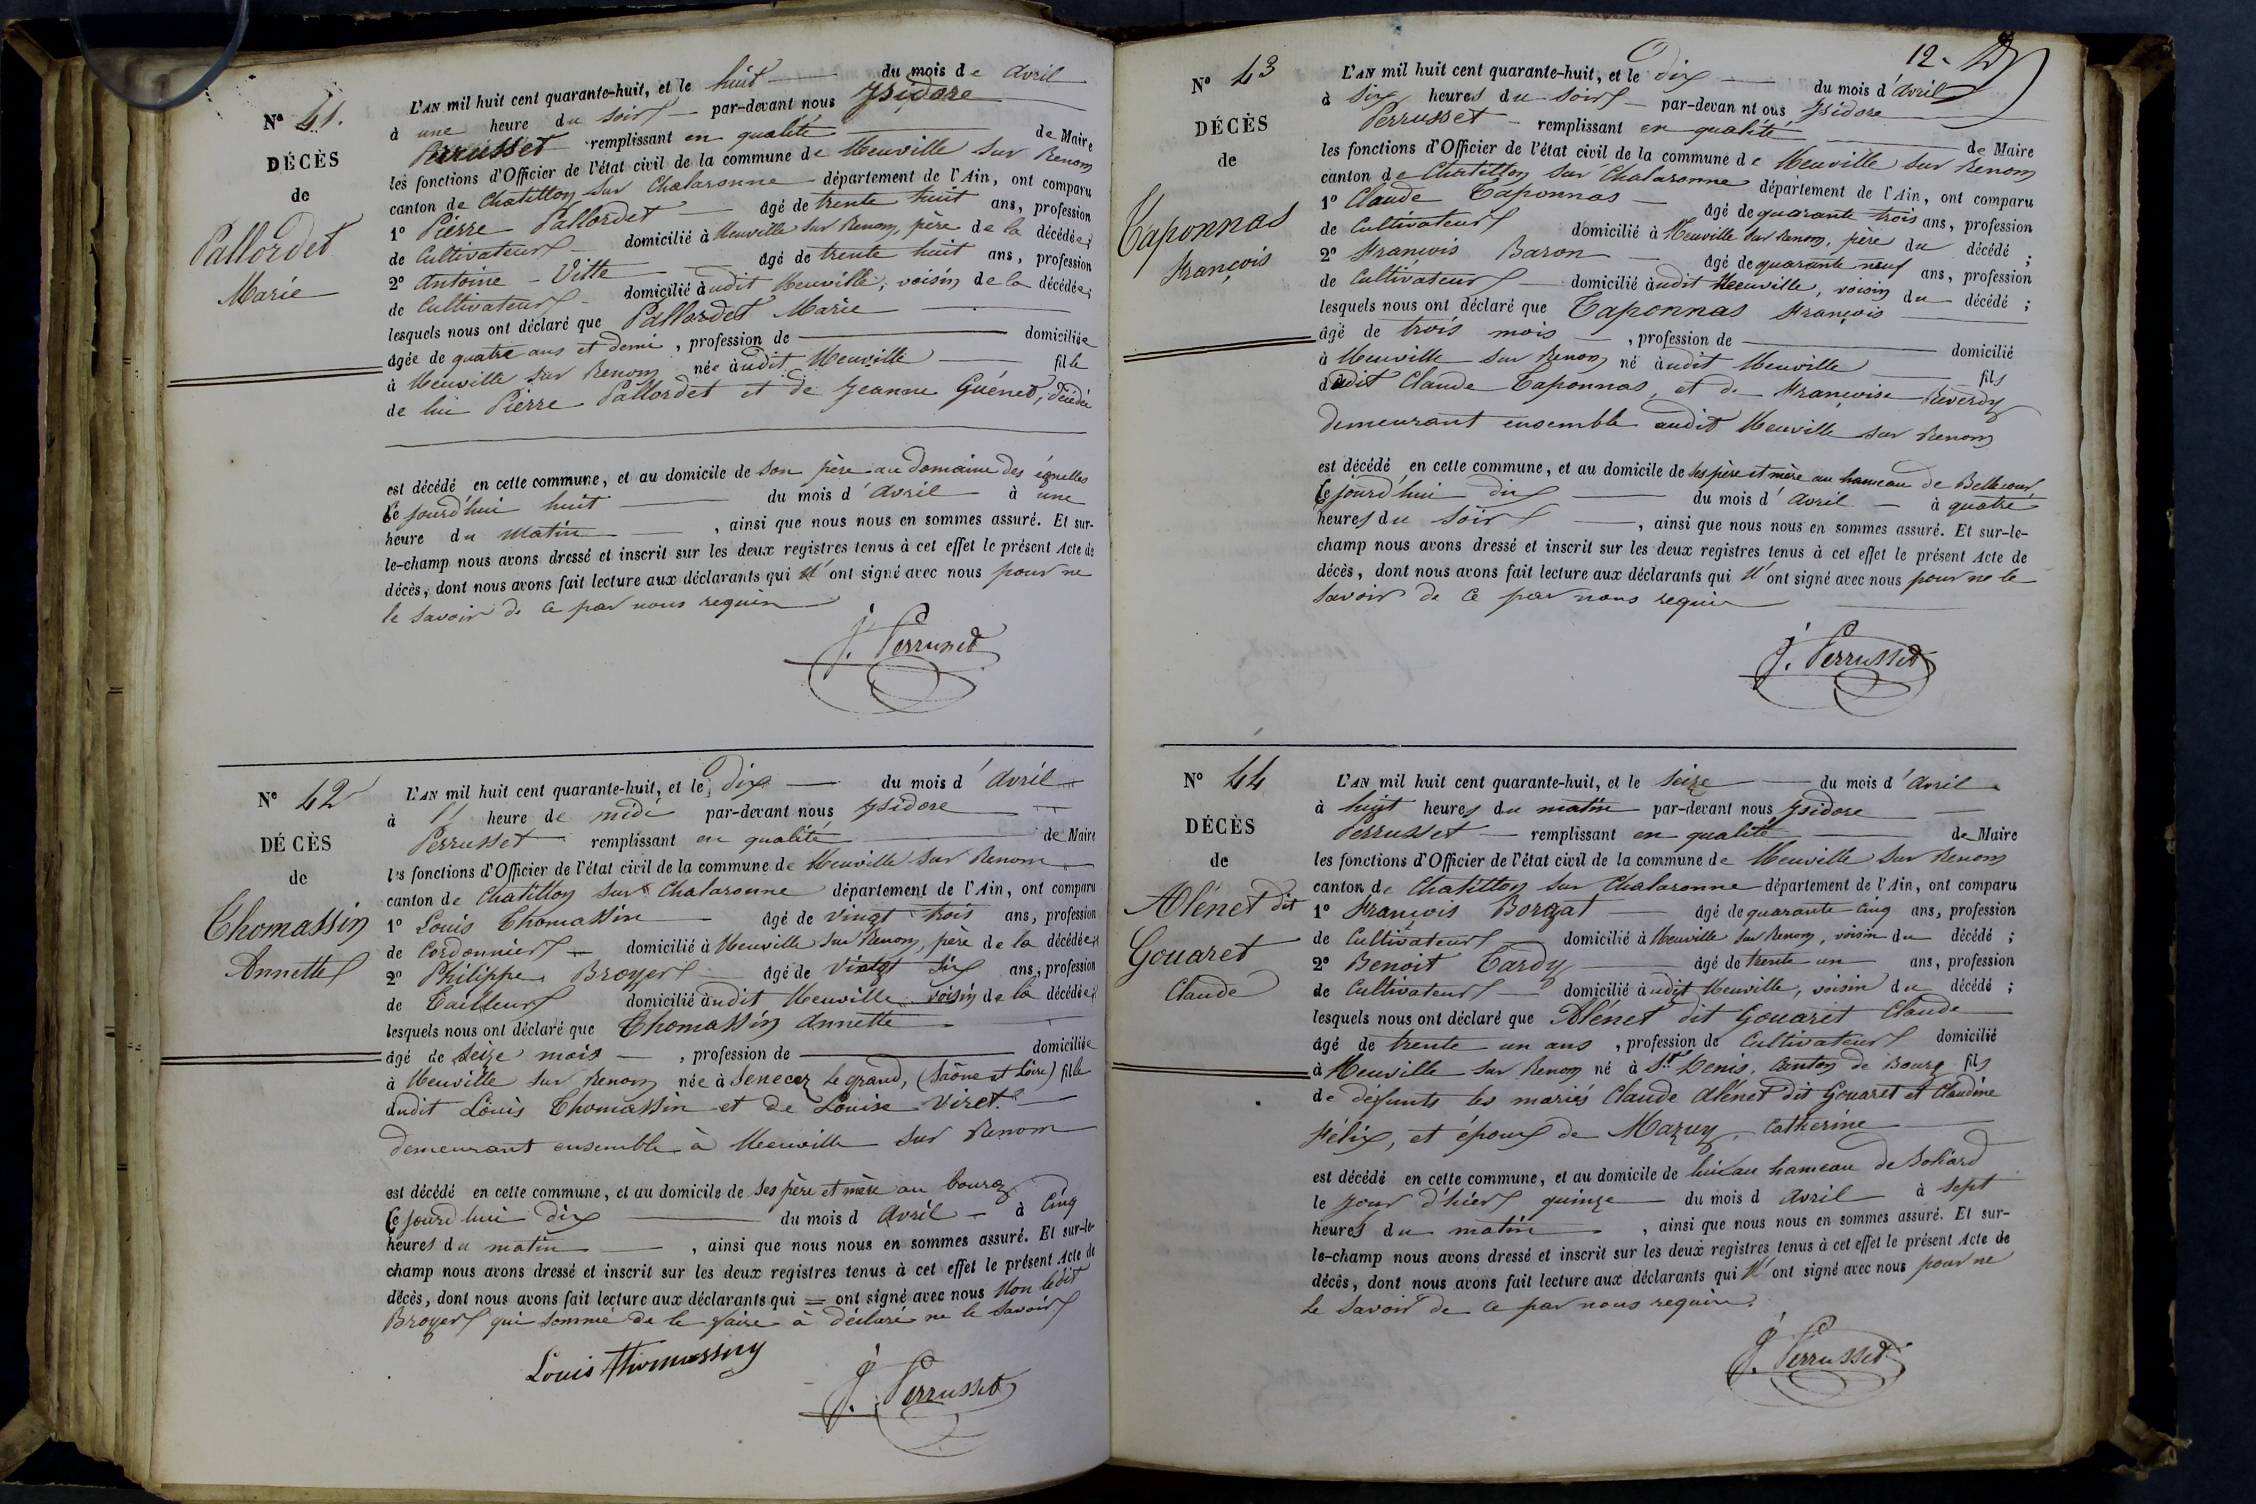 N° 41.
DÉCÈS
de
Pallordet
Marie
L'AN mil huit cent quarante-huit, et le huit du mois de avril
à une heure du soir par-devant nous Ysidore
Perrusset remplissant en qualité de Maire
les fonctions d'Officier de l'état civil de la commune de Neuville sur Renom
canton de Chatillon sur Chalaronne département de l'Ain, ont comparu
1° Pierre Pallordet âgé de trente huit ans, profession
de Cultivateur domicilié à Neuville sur Renom, père de la décédée;
2° Antoine Vitte âgé de trente huit ans, profession
de Cultivateur domicilié audit Neuville, voisin de la décédée;
lesquels nous ont déclaré que Pallordet Marie
âgée de quatre ans et demi, profession de domiciliée
à Neuville sur Renom née audit Neuville fille
de lui Pierre Pallordet et de Jeanne Guénet, décédée
est décédé en cette commune, et au domicile de son père au domaine des égnelles
Ce jourd'hui huit du mois d'avril à une
heure du matin, ainsi que nous nous en sommes assuré. Et sur-
le-champ nous avons dressé et inscrit sur les deux registres tenus à cet effet le présent Acte de
décès, dont nous avons fait lecture aux déclarants qui n'ont signé avec nous pour ne
le savoir de ce par nous requis
J. Perrusset
N° 42
DÉCÈS
de
Thomassin
Annette
L'AN mil huit cent quarante-huit, et le dix du mois d'avril
à 11 heure de midi par-devant nous Ysidore
Perrusset remplissant en qualité de Maire
les fonctions d'Officier de l'état civil de la commune de Neuville sur Renom
canton de Chatillon sur Chalaronne département de l'Ain, ont comparu
1° Louis Thomassin âgé de vingt trois ans, profession
de Cordonnier domicilié à Neuville sur Renom, père de la décédée;
2° Philippe Broyer âgé de vingt six ans, profession
de Tailleur domicilié audit Neuville voisin de la décédée;
lesquels nous ont déclaré que Thomassin Annette
âgé de seize mois, profession de domiciliée
à Neuville sur Renom née à Senecez le grand, (Saône et Loire) fille
dudit Louis Thomassin et de Louise Viret.
demeurant ensemble à Neuville sur Renom
est décédé en cette commune, et au domicile de ses père et mère au bourg
Ce jourd'hui dix du mois d avril à cinq
heures du matin, ainsi que nous nous en sommes assuré. Et sur-le-
champ nous avons dressé et inscrit sur les deux registres tenus à cet effet le présent Acte de
décès, dont nous avons fait lecture aux déclarants qui = ont signé avec nous Non ledit
Broyer qui sommé de le faire à déclaré ne le savoir
Louis Thomassin
J. Perrusset
12.
N° 43
DÉCÈS
de
Taponnas
François
L'AN mil huit cent quarante-huit, et le dix du mois d'avril
à six heures du soir par-devan nt ous Ysidore
Perrusset remplissant en qualité de Maire
les fonctions d'Officier de l'état civil de la commune de Neuville sur Renom
canton de Chatillon sur Chalaronne département de l'Ain, ont comparu
1° Claude Taponnas âgé de quarante trois ans, profession
de Cultivateur domicilié à Neuville sur Renom, père du décédé;
2° François Baron âgé de quarante neuf ans, profession
de Cultivateur domicilié audit Neuville, voisin du décédé;
lesquels nous ont déclaré que Taponnas François
âgé de trois mois, profession de domicilié
à Neuville sur Renom né audit Neuville fils
dudit Claude Taponnas, et de Françoise Reverdy
demeurant ensemble audit Neuville sur Renom
est décédé en cette commune, et au domicile de ses père et mère au hameau de Bellecour
Ce jourd'hui dix du mois d'avril à quatre
heures du soir, ainsi que nous nous en sommes assuré. Et sur-le-
champ nous avons dressé et inscrit sur les deux registres tenus à cet effet le présent Acte de
décès, dont nous avons fait lecture aux déclarants qui n'ont signé avec nous pour ne le
savoir de ce par nous requis
J. Perrusset
N° 44
DÉCÈS
de
Alénet dit
Gouaret
Claude
L'AN mil huit cent quarante-huit, et le seize du mois d'avril
à huit heures du matin par-devant nous Ysidore
Perrusset remplissant en qualité de Maire
les fonctions d'Officier de l'état civil de la commune de Neuville sur Renom
canton de Chatillon sur Chalaronne département de l'Ain, ont comparu
1° François Borgat âgé de quarante cinq ans, profession
de Cultivateur domicilié à Neuville sur Renom, voisin du décédé;
2° Benoit Tardy âgé de trente un ans, profession
de Cultivateur domicilié audit Neuville, voisin du décédé;
lesquels nous ont déclaré que Alénet dit Gouaret Claude
âgé de trente un ans, profession de Cultivateur domicilié
à Neuville sur Renom né à St Denis, canton de Bourg fils
de défunts les mariés Claude Alénet dit Gouaret et Claudine
Félix, et époux de Mazuy, Catherine
est décédé en cette commune, et au domicile de lui au hameau de
le jour d'hier quinze du mois d avril à sept
heures du matin, ainsi que nous nous en sommes assuré. Et sur-
le-champ nous avons dressé et inscrit sur les deux registres tenus à cet effet le présent Acte de
décès, dont nous avons fait lecture aux déclarants qui n'ont signé avec nous pour ne
le savoir de ce par nous requis.
J. Perrusset